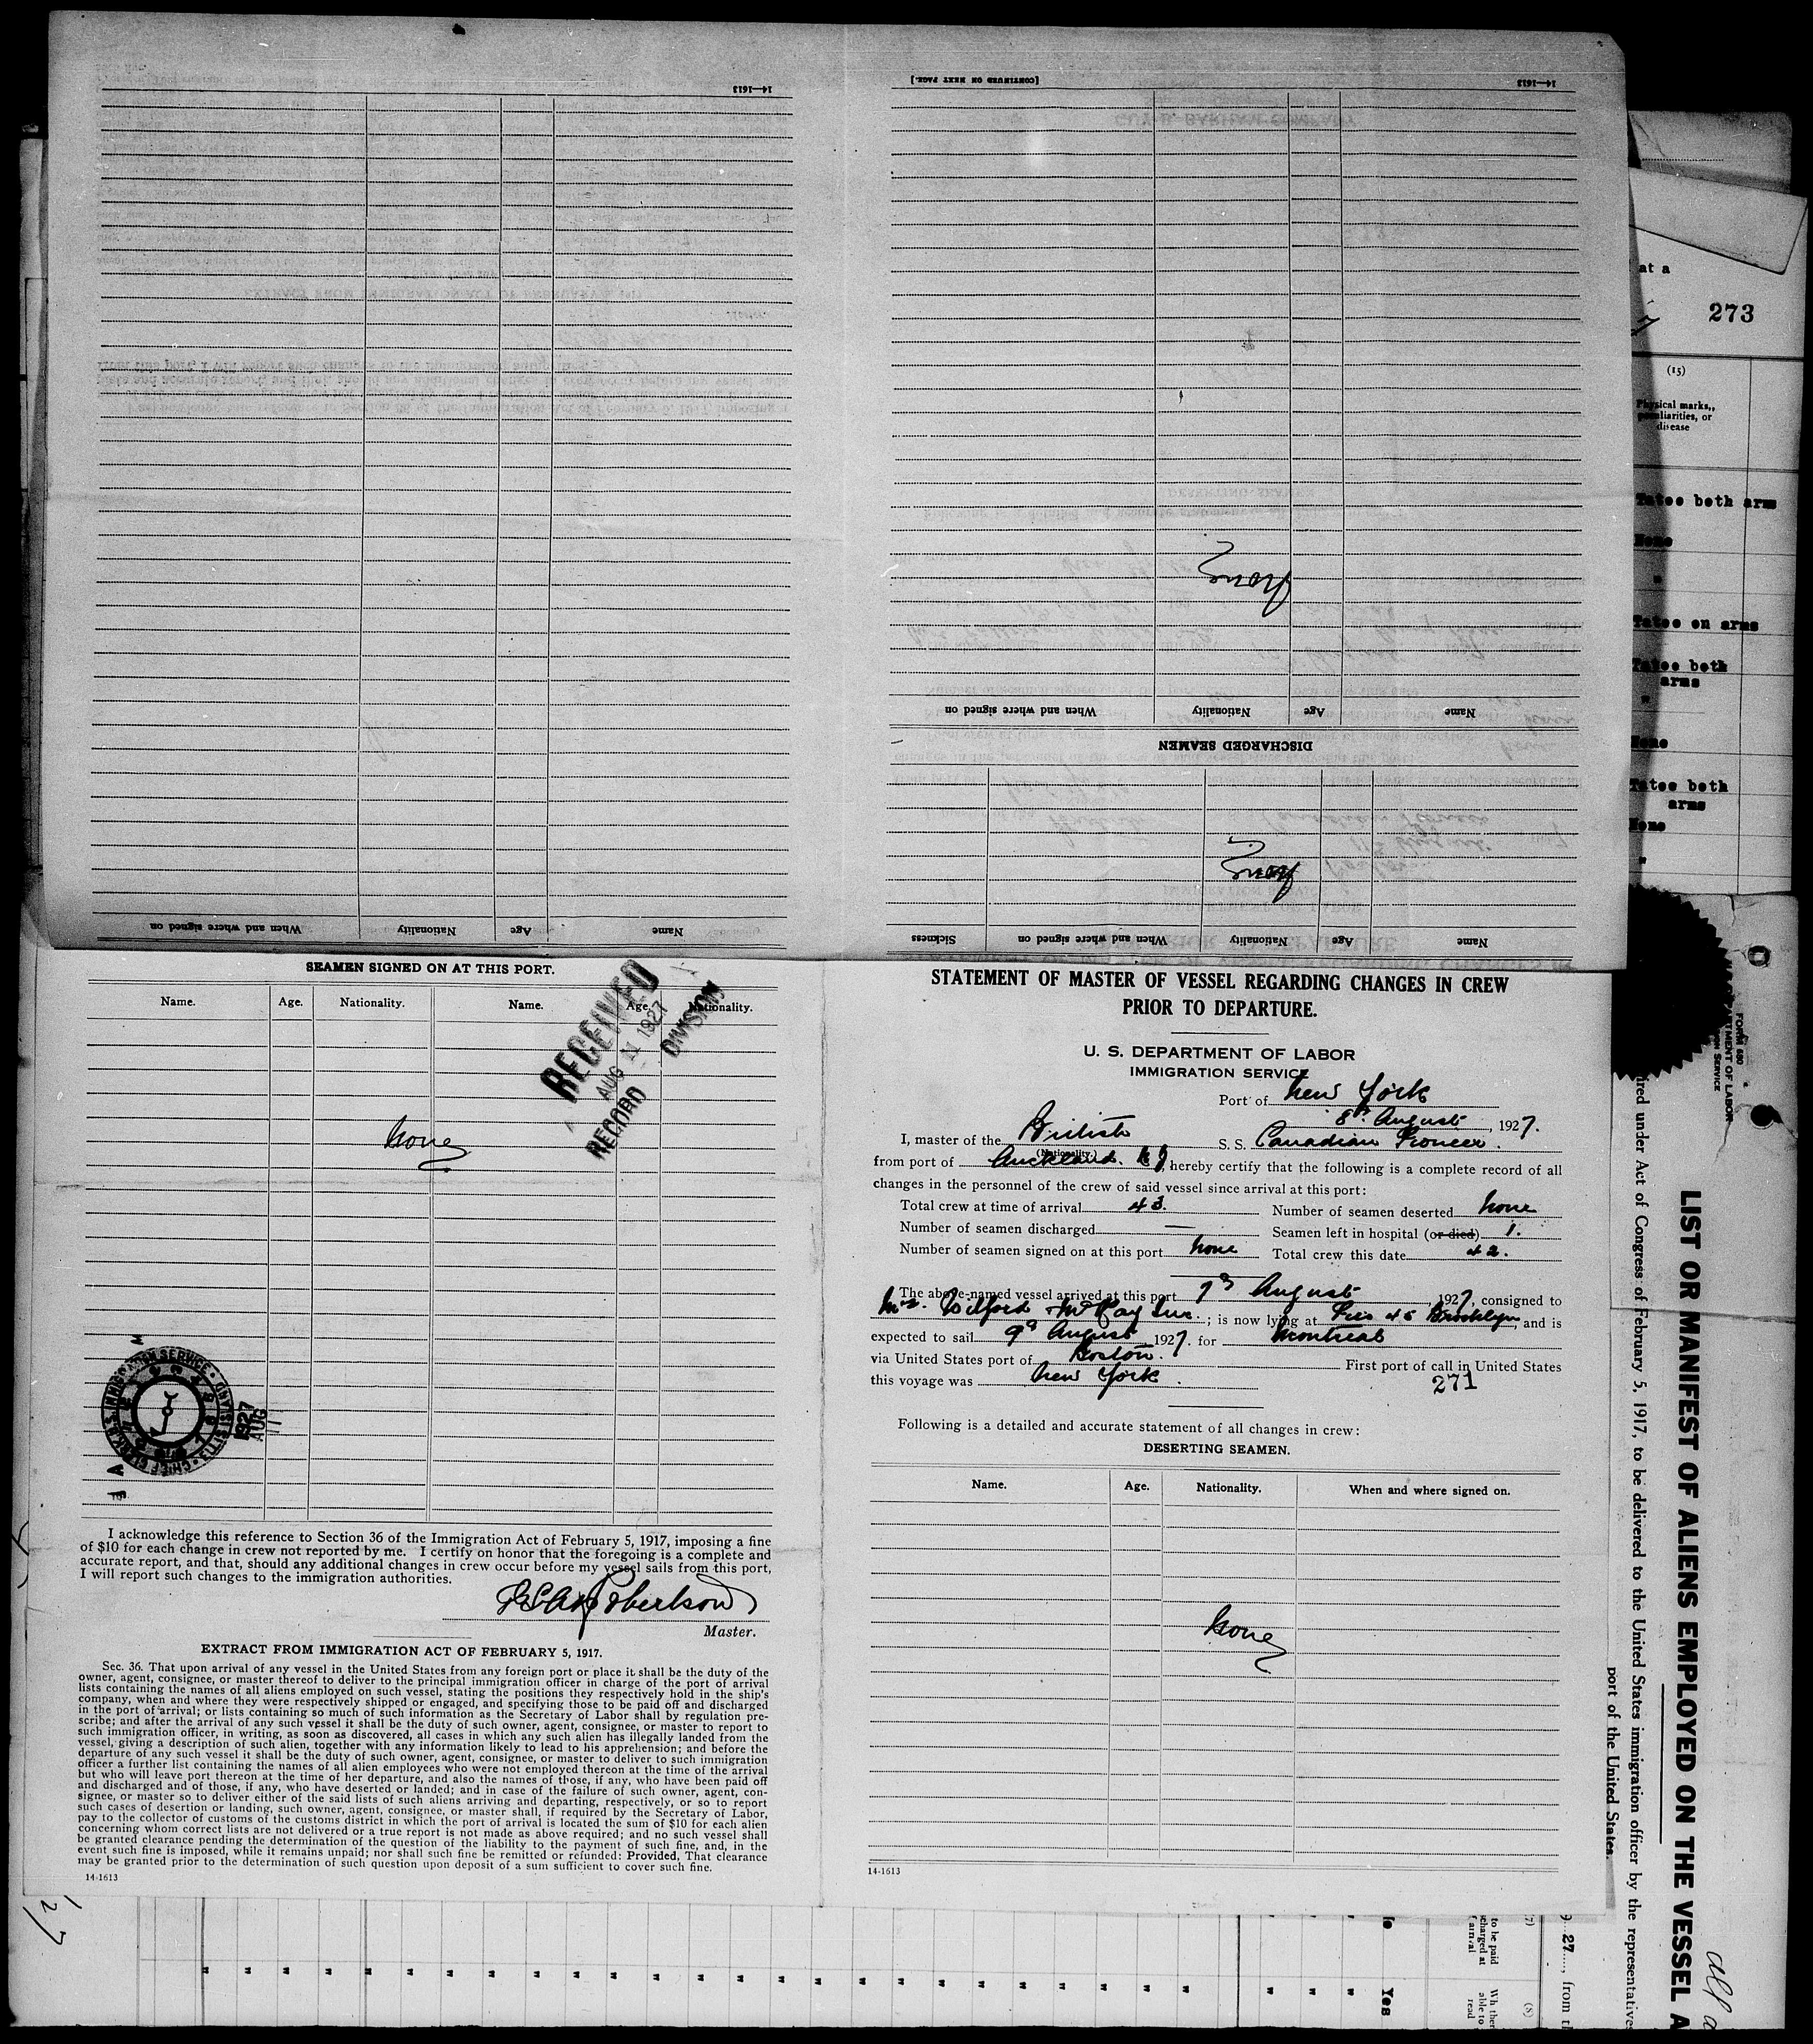 14—1613
[CONTINUED ON NEXT PAGE.]
14—1613
None
When and where signed on
Nationality
Age
Name
DISCHARGED SEAMEN
None
Sickness
When and where signed on
Nationality
Age
Name
When and where signed on
Nationality
Age
Name
at a
273
(15)
Physical marks,
peculiarities, or
disease
Tatoo both arm
None
"
Tatoo on arms
Tatoo both
arms
"
None
Tatoo both
arms
None
"
SEAMEN SIGNED ON AT THIS PORT.
Name.
Age.
Nationality.
Name.
Age.
Nationality.
RECEIVED
AUG 11 1927
RECORD DIVISION
None
1927
AUG
I acknowledge this reference to Section 36 of the Immigration Act of February 5, 1917, imposing a fine
of $10 for each change in crew not reported by me. I certify on honor that the foregoing is a complete and
accurate report, and that, should any additional changes in crew occur before my vessel sails from this port,
I will report such changes to the immigration authorities.
Robertson
Master.
EXTRACT FROM IMMIGRATION ACT OF FEBRUARY 5, 1917.
Sec. 36. That upon arrival of any vessel in the United States from any foreign port or place it shall be the duty of the
owner, agent, consignee, or master thereof to deliver to the principal immigration officer in charge of the port of arrival
lists containing the names of all aliens employed on such vessel, stating the positions they respectively hold in the ship's
company, when and where they were respectively shipped or engaged, and specifying those to be paid off and discharged
in the port of arrival; or lists containing so much of such information as the Secretary of Labor shall by regulation pre-
scribe; and after the arrival of any such vessel it shall be the duty of such owner, agent, consignee, or master to report to
such immigration officer, in writing, as soon as discovered, all cases in which any such alien has illegally landed from the
vessel, giving a description of such alien, together with any information likely to lead to his apprehension; and before the
departure of any such vessel it shall be the duty of such owner, agent, consignee, or master to deliver to such immigration
officer a further list containing the names of all alien employees who were not employed thereon at the time of the arrival
but who will leave port thereon at the time of her departure, and also the names of those, if any, who have been paid off
and discharged and of those, if any, who have deserted or landed; and in case of the failure of such owner, agent, con-
signee, or master so to deliver either of the said lists of such aliens arriving and departing, respectively, or so to report
such cases of desertion or landing, such owner, agent, consignee, or master shall, if required by the Secretary of Labor,
pay to the collector of customs of the customs district in which the port of arrival is located the sum of $10 for each alien
concerning whom correct lists are not delivered or a true report is not made as above required; and no such vessel shall
be granted clearance pending the determination of the question of the liability to the payment of such fine, and, in the
event such fine is imposed, while it remains unpaid; nor shall such fine be remitted or refunded: Provided, That clearance
may be granted prior to the determination of such question upon deposit of a sum sufficient to cover such fine.
14-1613
STATEMENT OF MASTER OF VESSEL REGARDING CHANGES IN CREW
PRIOR TO DEPARTURE.
U. S. DEPARTMENT OF LABOR
IMMIGRATION SERVICE
Port of New York
8th August, 1927.
I, master of the British S. S. Canadian Pioneer.
(Nationality.)
from port of Auckland. N Z, hereby certify that the following is a complete record of all
changes in the personnel of the crew of said vessel since arrival at this port:
Total crew at time of arrival 43. Number of seamen deserted None
Number of seamen discharged — Seamen left in hospital (or died) 1.
Number of seamen signed on at this port None Total crew this date 42.
The above-named vessel arrived at this port 7th August 1927, consigned to
Wilford & McKay Inc.; is now lying at Pier 45 Brooklyn and is
expected to sail 9th August 1927. for Montreal
via United States port of Boston. First port of call in United States
this voyage was New York.
271
Following is a detailed and accurate statement of all changes in crew:
DESERTING SEAMEN.
Name.
Age.
Nationality.
When and where signed on.
None
14-1613
FORM 680
LIST OR MANIFEST OF ALIENS EMPLOYED ON THE VESSEL A
ired under Act of Congress of February 5, 1917, to be delivered to the United States immigration officer by the representatives
port of the United States.
27, from th
to be paid
(8)
Yes